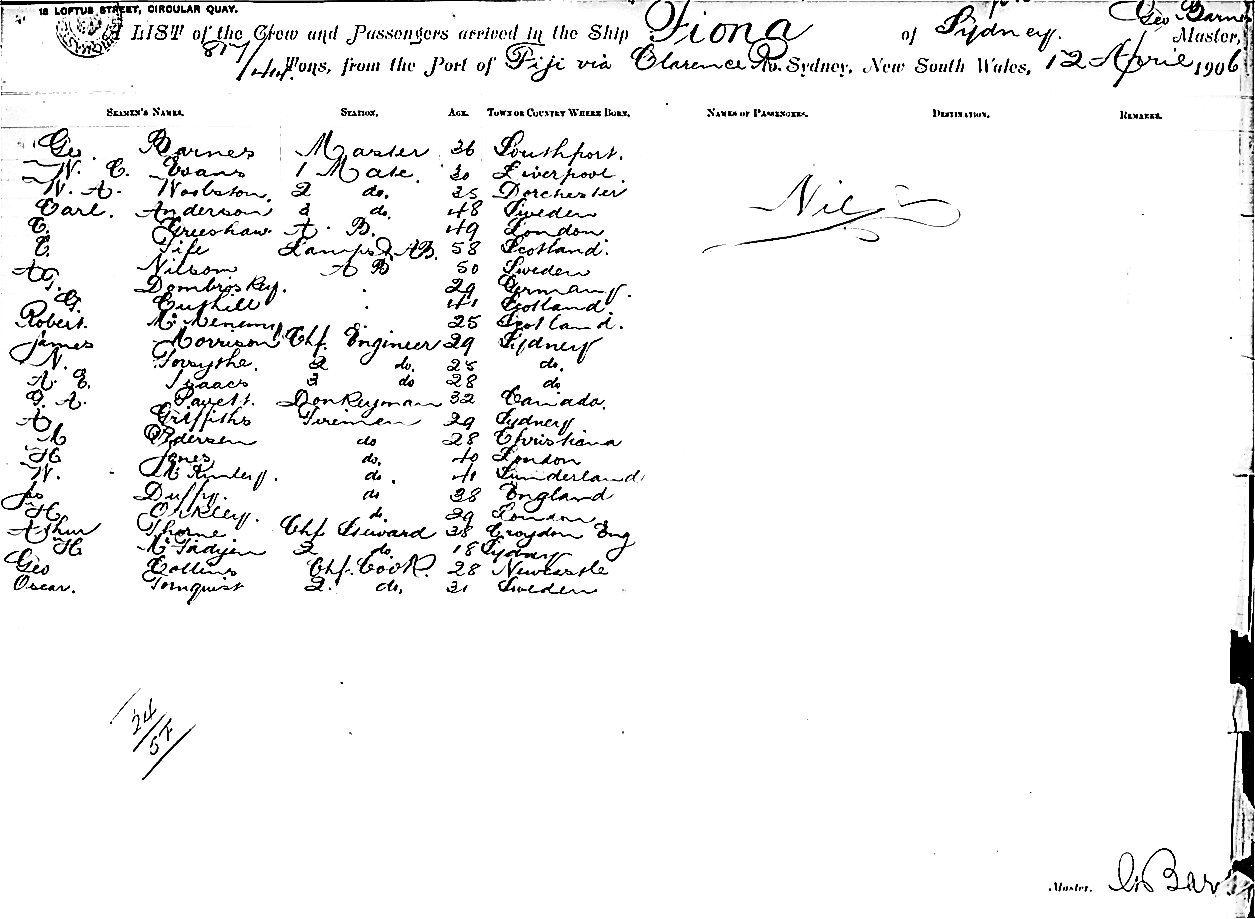 18 LOFTUS STREET, CIRCULAR QUAY.
A LIST of the Crew and Passengers arrived in the Ship Fiona of Sydney. Geo Barnes Master,
Tons, from the Port of Fiji via Clarence R. Sydney, New South Wales, 12 April 1906
SEAMEN'S NAMES. STATION. AGE. TOWN OR COUNTRY WHERE BORN. NAMES OF PASSENGERS. DESTINATION. REMARKS.
Geo. Barnes Master 36 Southport.
W. C. Evans 1 Mate. 30 Liverpool.
W. A. 2 do. 35 Dorchester
Carl. Anderson 3 do. 48 Sweden
Nil
C. Greeshaw A. B. 49 London
C. Fife Lamps & AB. 58 Scotland.
Nilsom A B 50 Sweden
Dombroskey. 29 Germany.
G. Cuthill 41 Scotland
Robert. McMenemy 25 Scotland.
James Morrison Chf. Engineer 29 Sydney
N. Forsythe. 2 do. 28 do.
A. E. Isaacs 3 do 28 do
Donkeyman 32 Canada.
A Griffiths Firemen 29 Sydney
M Pedersen do 28 Christiana
H Jones do. 40 London
W. McKinley. do. 41 Sunderland
Jas Duffy. do 38 England
H Oakley. do. 39 London
Arthur Thorne Chf Steward 38 Croydon Eng
H McFadyen 2 do 18 Sydney
Geo Collins Chf. Cook. 28 Newcastle
Oscar. Tornquist 2. do. 31 Sweden
24
57
Master. G Bar